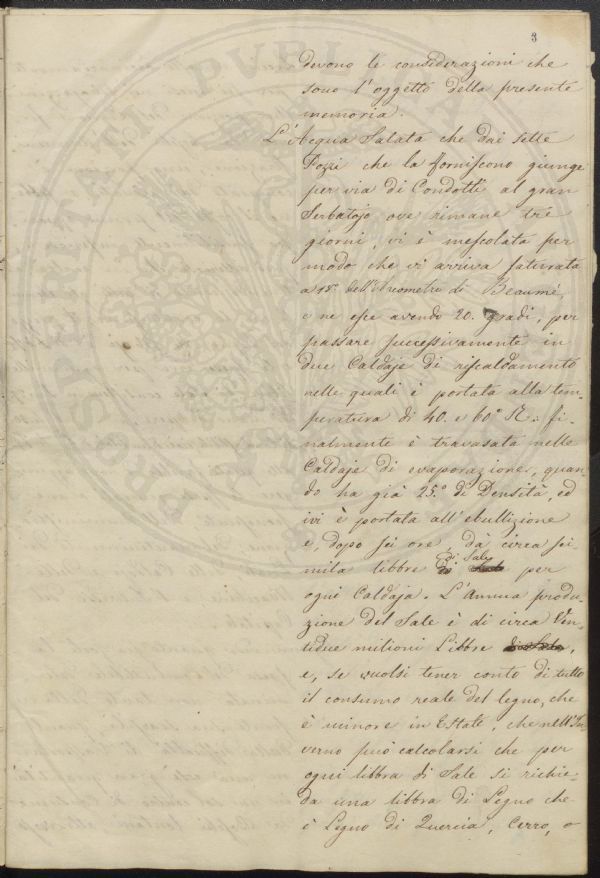 3
devono le considerazioni che
sono l'oggetto della presente
memoria.
L'Acqua Salata che dai sette
Pozzi che la forniscono giunge
per via di Condotti al gran
Serbatojo ove rimane tre
giorni, vi è mescolata per
modo che vi arriva saturata
a 15.° dell'Areometro di Beaumé,
e ne esce avendo 20. gradi, per
passare successivamente in
due Caldaje di riscaldamento
nelle quali è portata alla tem-
peratura di 40. e 60° R.: fi-
nalmente è travasata nelle
Caldaje di evaporazione, quan-
do ha già 25.° di Densità, ed
ivi è portata all'ebullizione
e, dopo sei ore, dà circa sei
mila libbre di Sale per
ogni Caldaja. L'Annua produ-
zione del Sale è di circa Ven-
tidue milioni Libbre,
e, se vuolsi tener conto di tutto
il consumo reale del legno, che
è minore in Estate, che nell'In
verno può calcolarsi che per
ogni libbra di Sale si richie-
da una libbra di Legno che
è Legno di Quercia, Cerro, o
PVBLICA